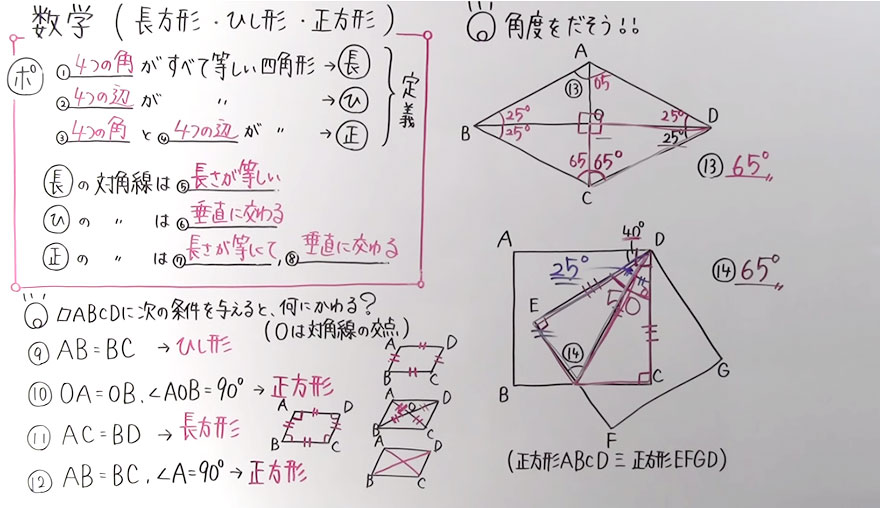 数学 ( 長方形・ひし形・正方形 )
ポ
①4つの角がすべて等しい四角形→長
②4つの辺が 〃 →ひ
③4つの角と④4つの辺が 〃 →正
定義
長の対角線は⑤長さが等しい
ひの 〃 は⑥垂直に交わる
正の 〃 は⑦長さが等しくて,⑧垂直に交わる
▱ABCDに次の条件を与えると、何にかわる?
(Oは対角線の交点)
⑨ AB=BC →ひし形
⑩ OA=OB、∠AOB=90°→正方形
⑪ AC=BD →長方形
⑫ AB=BC、∠A=90°→正方形
A D
B C
A D
B C
A D
O
B C
A D
B C
角度をだそう!!
A
⑬ 65
B 25° 25° O 25° 25° D
65 65°
C
⑬ 65°
A 40° D
25° 50
E
⑭
B C G
F
⑭ 65°
(正方形ABCD≡正方形EFGD)